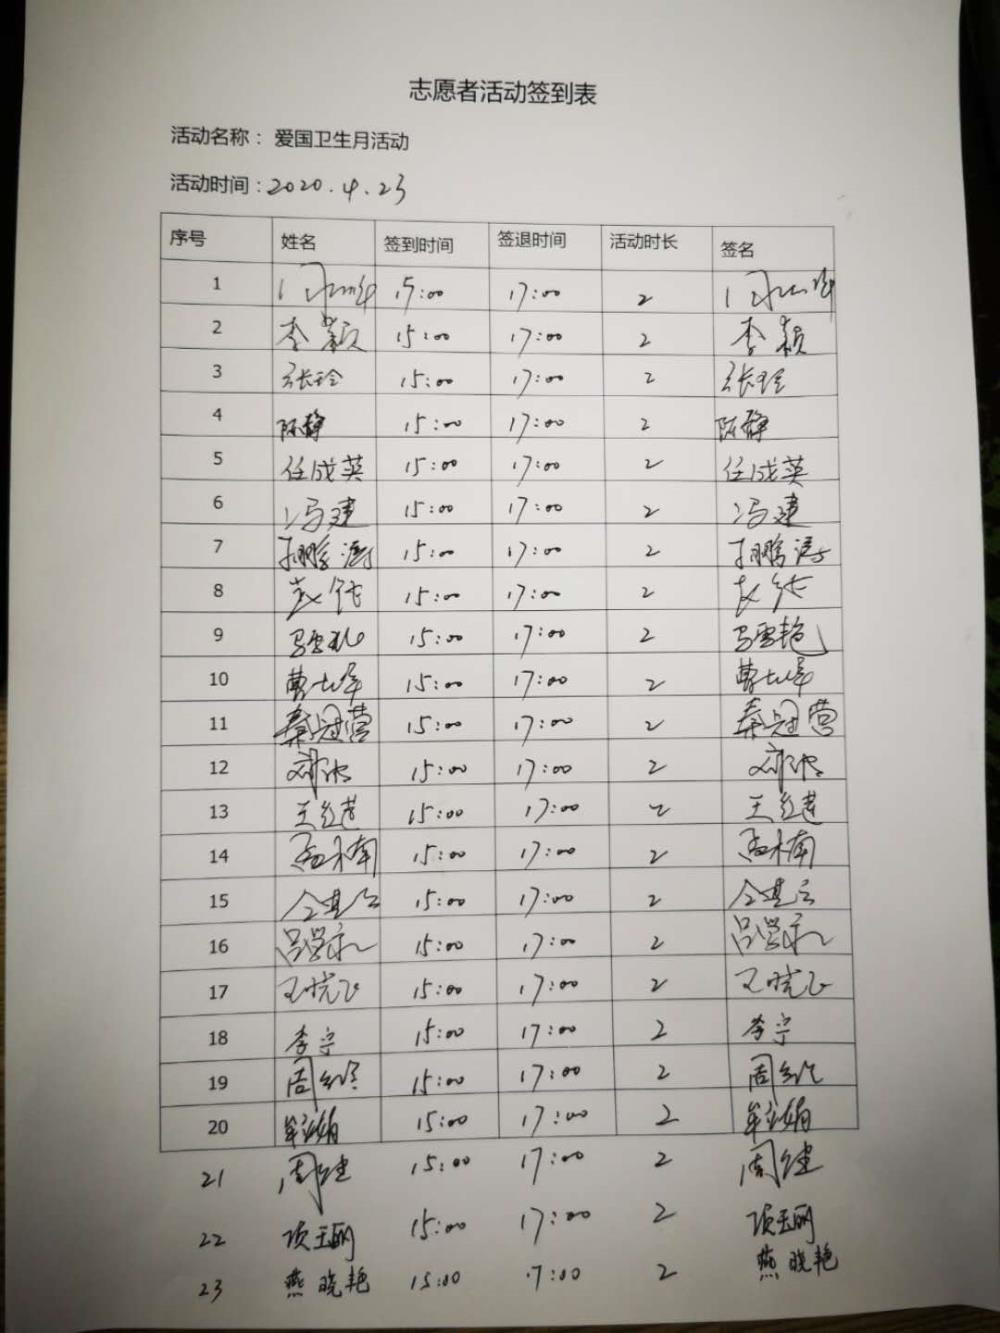 志愿者活动签到表
活动名称： 爱国卫生月活动
活动时间：2020.4.23
序号 姓名 签到时间 签退时间 活动时长 签名
1 15:00 17:00 2
2 李颖 15:00 17:00 2 李颖
3 张玲 15:00 17:00 2 张玲
4 陈静 15:00 17:00 2 陈静
5 任成英 15:00 17:00 2 任成英
6 冯建 15:00 17:00 2 冯建
7 孙鹏涛 15:00 17:00 2 孙鹏涛
8 15:00 17:00 2
9 马雪艳 15:00 17:00 2 马雪艳
10 曹 15:00 17:00 2 曹
11 秦冠营 15:00 17:00 2 秦冠营
12 15:00 17:00 2
13 王红莲 15:00 17:00 2 王红莲
14 孟木南 15:00 17:00 2 孟木南
15 15:00 17:00 2
16 吕学永 15:00 17:00 2 吕学永
17 王晓飞 15:00 17:00 2 王晓飞
18 李宁 15:00 17:00 2 李宁
19 周 15:00 17:00 2 周
20 牟立娟 15:00 17:00 2 牟立娟
21 周健 15:00 17:00 2 周健
22 项玉丽 15:00 17:00 2 项玉丽
23 燕晓艳 15:00 17:00 2 燕晓艳